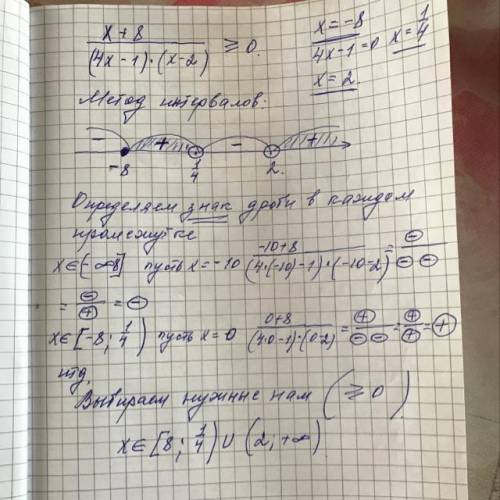 (x+8)/((4x-1)·(x-2)) ≥ 0.
x=-8
4x-1=0 x=1/4
x=2.
Метод интервалов:
- + - +
-8 1/4 2.
Определяем знак дроби в каждом
промежутке
x∈[-∞8] пусть x=-10 (-10+8)/((4·(-10)-1)·(-10-2)) = ⊖/(⊖⊖)
= ⊖/⊕ = ⊖
x∈[-8; 1/4) пусть x=0 (0+8)/((4·0-1)·(0-2)) = ⊕/(⊖⊖) = ⊕/⊕ = ⊕
итд.
Выбираем нужные нам (≥0)
x∈[8; 1/4)∪(2;+∞)